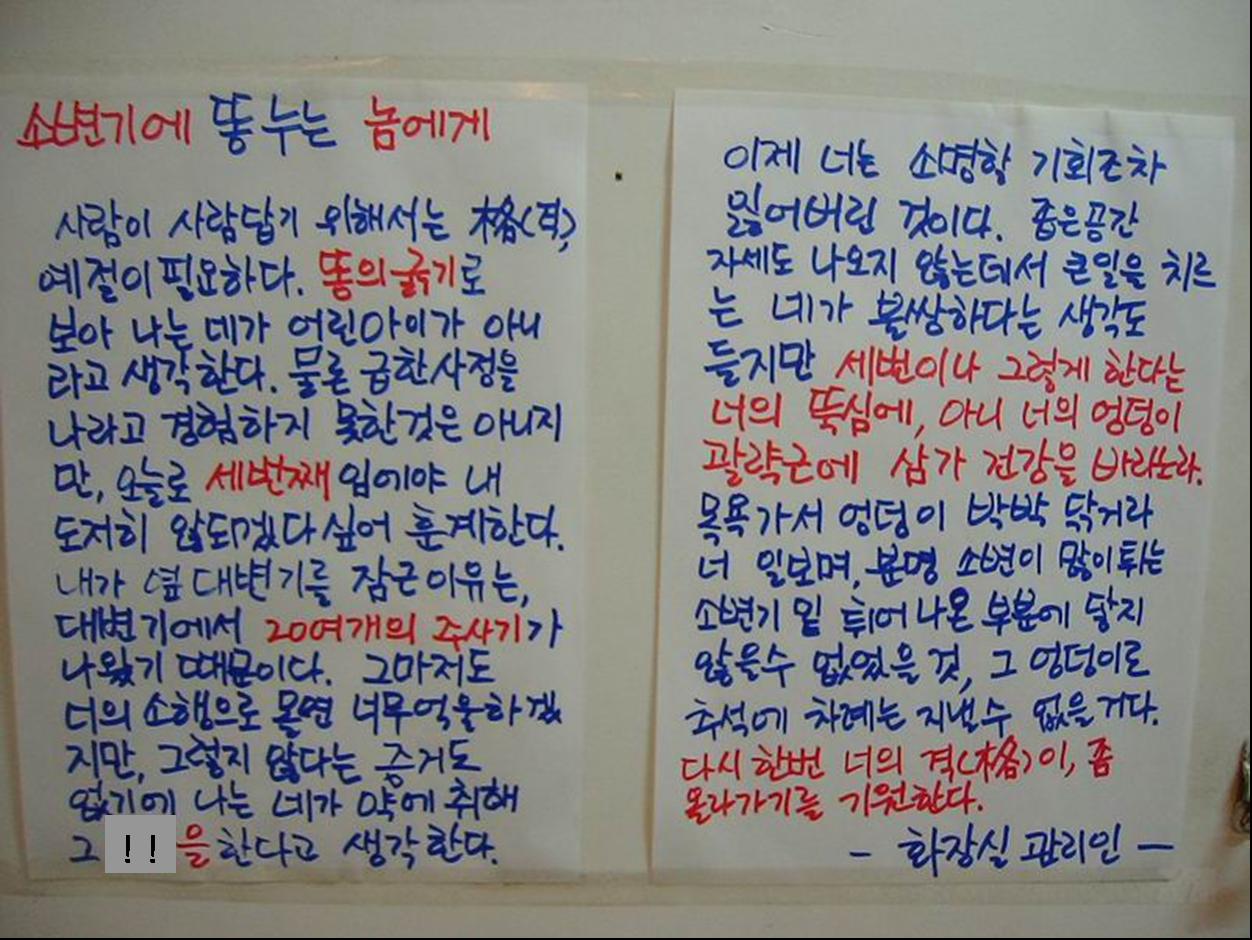 소변기에 똥 누는 놈에게
사람이 사람답기 위해서는 格(격),
예절이 필요하다. 똥의 굵기로
보아 나는 네가 어린아이가 아니
라고 생각한다. 물론 급한사정을
나라고 경험하지 못한것은 아니지
만, 오늘로 세번째 입에야 내
도저히 않되겠다 싶어 훈계한다.
내가 옆 대변기를 잠근이유는,
대변기에서 20여개의 주사기가
나왔기 때문이다. 그마저도
너의 소행으로 몰면 너무억울하겠
지만, 그렇지 않다는 증거도
없기에 나는 네가 약에 취해
그 !!을 한다고 생각한다.
이제 너는 소명할 기회조차
잃어버린 것이다. 좁은공간
자세도 나오지 않는데서 큰일을 치르
는 네가 불쌍하다는 생각도
들지만 세번이나 그렇게 한다는
너의 뚝심에, 아니 너의 엉덩이
괄략근에 삼가 건강을 바라노라.
목욕가서 엉덩이 박박 닦거라
너 일보며, 분명 소변이 많이튀는
소변기 밑 튀어나온 부분에 닿지
않을수 없었을 것, 그 엉덩이로
추석에 차례는 지낼수 없을거다.
다시 한번 너의 격(格)이, 좀
올라가기를 기원한다.
- 화장실 관리인 -